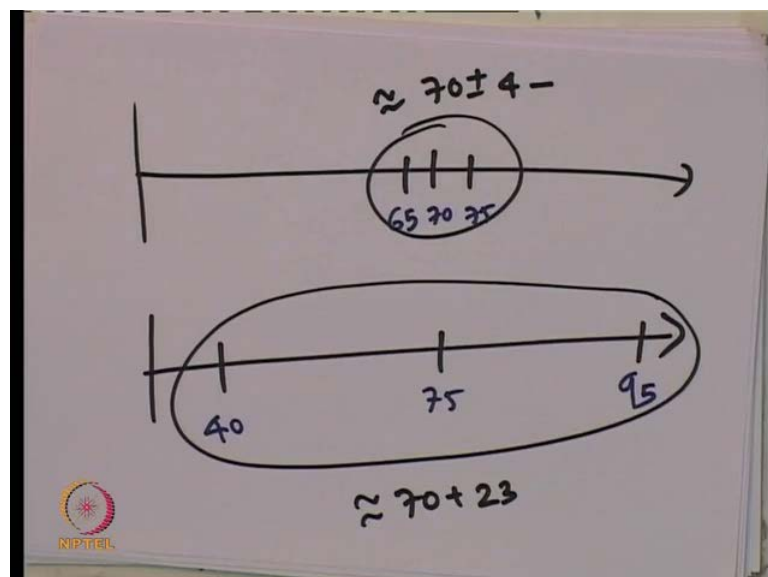 ≈ 70 ± 4 –
65 70 75
40 75 95
≈ 70 + 23
NPTEL